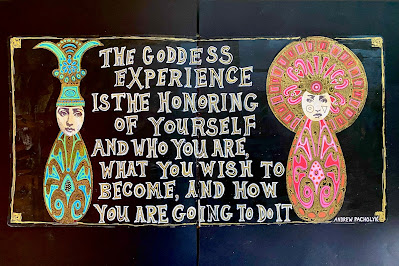 THE GODDESS
EXPERIENCE
IS THE HONORING
OF YOURSELF
AND WHO YOU ARE,
WHAT YOU WISH TO
BECOME, AND HOW
YOU ARE GOING TO DO IT
ANDREW PACHOLYK